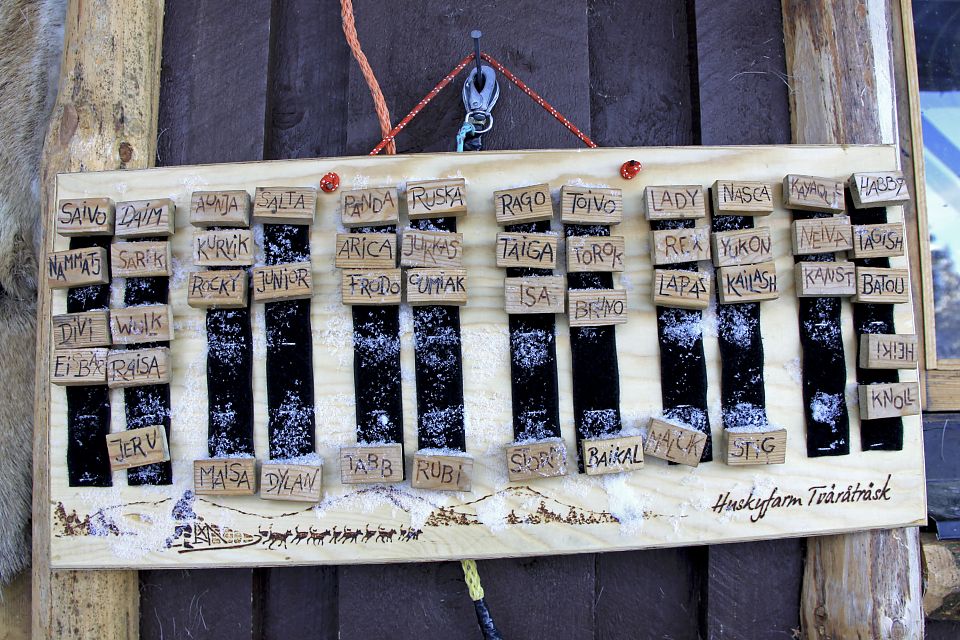 SAIVO DAIM AUNJA SALTA PANDA RUSKA RAGO TOIVO LADY NASCA KAYAQUE HABBY
NAMMAJ SAREK KURVIK ARICA JURKAS TAIGA TOROK REX YUKON NEIVA TAGISH
ROCKY JUNIOR FRODO CUMIAK ISA BRUNO LAPAS KAILASH KANSTI BATOU
DIVI WOLK HEIKI
EIBA RAISA KNOLL
JERV MAISA DYLAN TABB RUBI SIORI BAIKAL NAUK STIG
Huskyfarm Tväråträsk